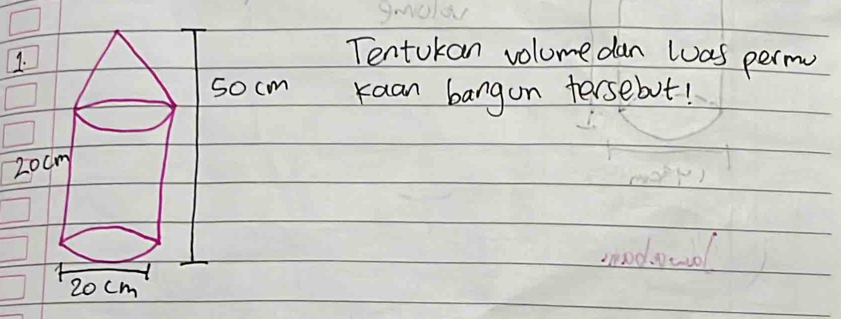 1.
Tentukan volume dan luas permu
50 cm
kaan bangun tersebut!
20cm
20 cm